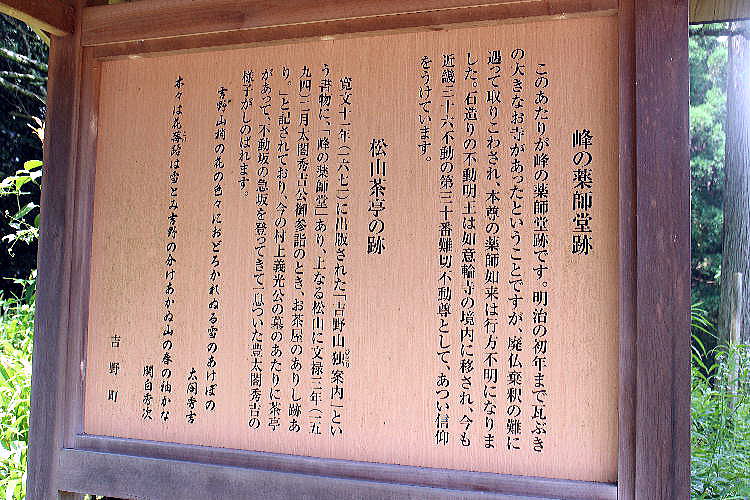 峰の薬師堂跡
このあたりが峰の薬師堂跡です。明治の初年まで瓦ぶき
の大きなお寺があったということですが、廃仏棄釈の難に
遇って取りこわされ、本尊の薬師如来は行方不明になりま
した。石造りの不動明王は如意輪寺の境内に移され、今も
近畿三十六不動の第三十番難切不動尊として、あつい信仰
をうけています。
松山茶亭の跡
寛文十一年(一六七一)に出版された「吉野山独案内」とい
う書物に、「峰の薬師堂」あり、上なる松山に文禄三年(一五
九四)二月太閤秀吉公御参詣のとき、お茶屋のありし跡あ
り。」と記されており、今の村上義光公の墓のあたりに茶亭
があって、不動坂の急坂を登ってきて一息ついた豊太閤秀吉の
様子がしのばれます。
吉野山梢の花の色々におどろかれぬる雪のあけぼの
太閤秀吉
木々は花苔路は雪とみ吉野の分けあかぬ山の春の袖かな
関白秀次
吉野町